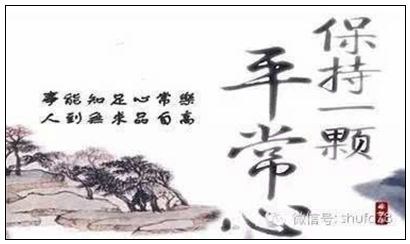 保持一颗
平常心
事能知足心常樂
人到無求品自高
微信号: